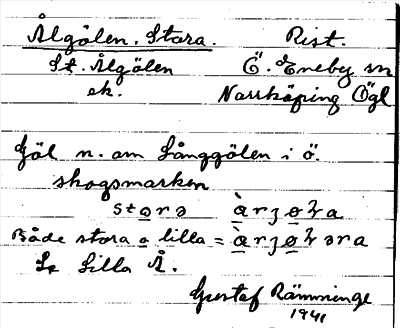 Ålgölen, Stora. Rist.
St. Ålgölen Ö. Eneby sn
ek. Norrköping Ögl
Göl n. om Långgölen i ö.
skogsmarken
stora
Både stora o lilla =
Se Lilla Å.
Gustaf Rämminge
1941